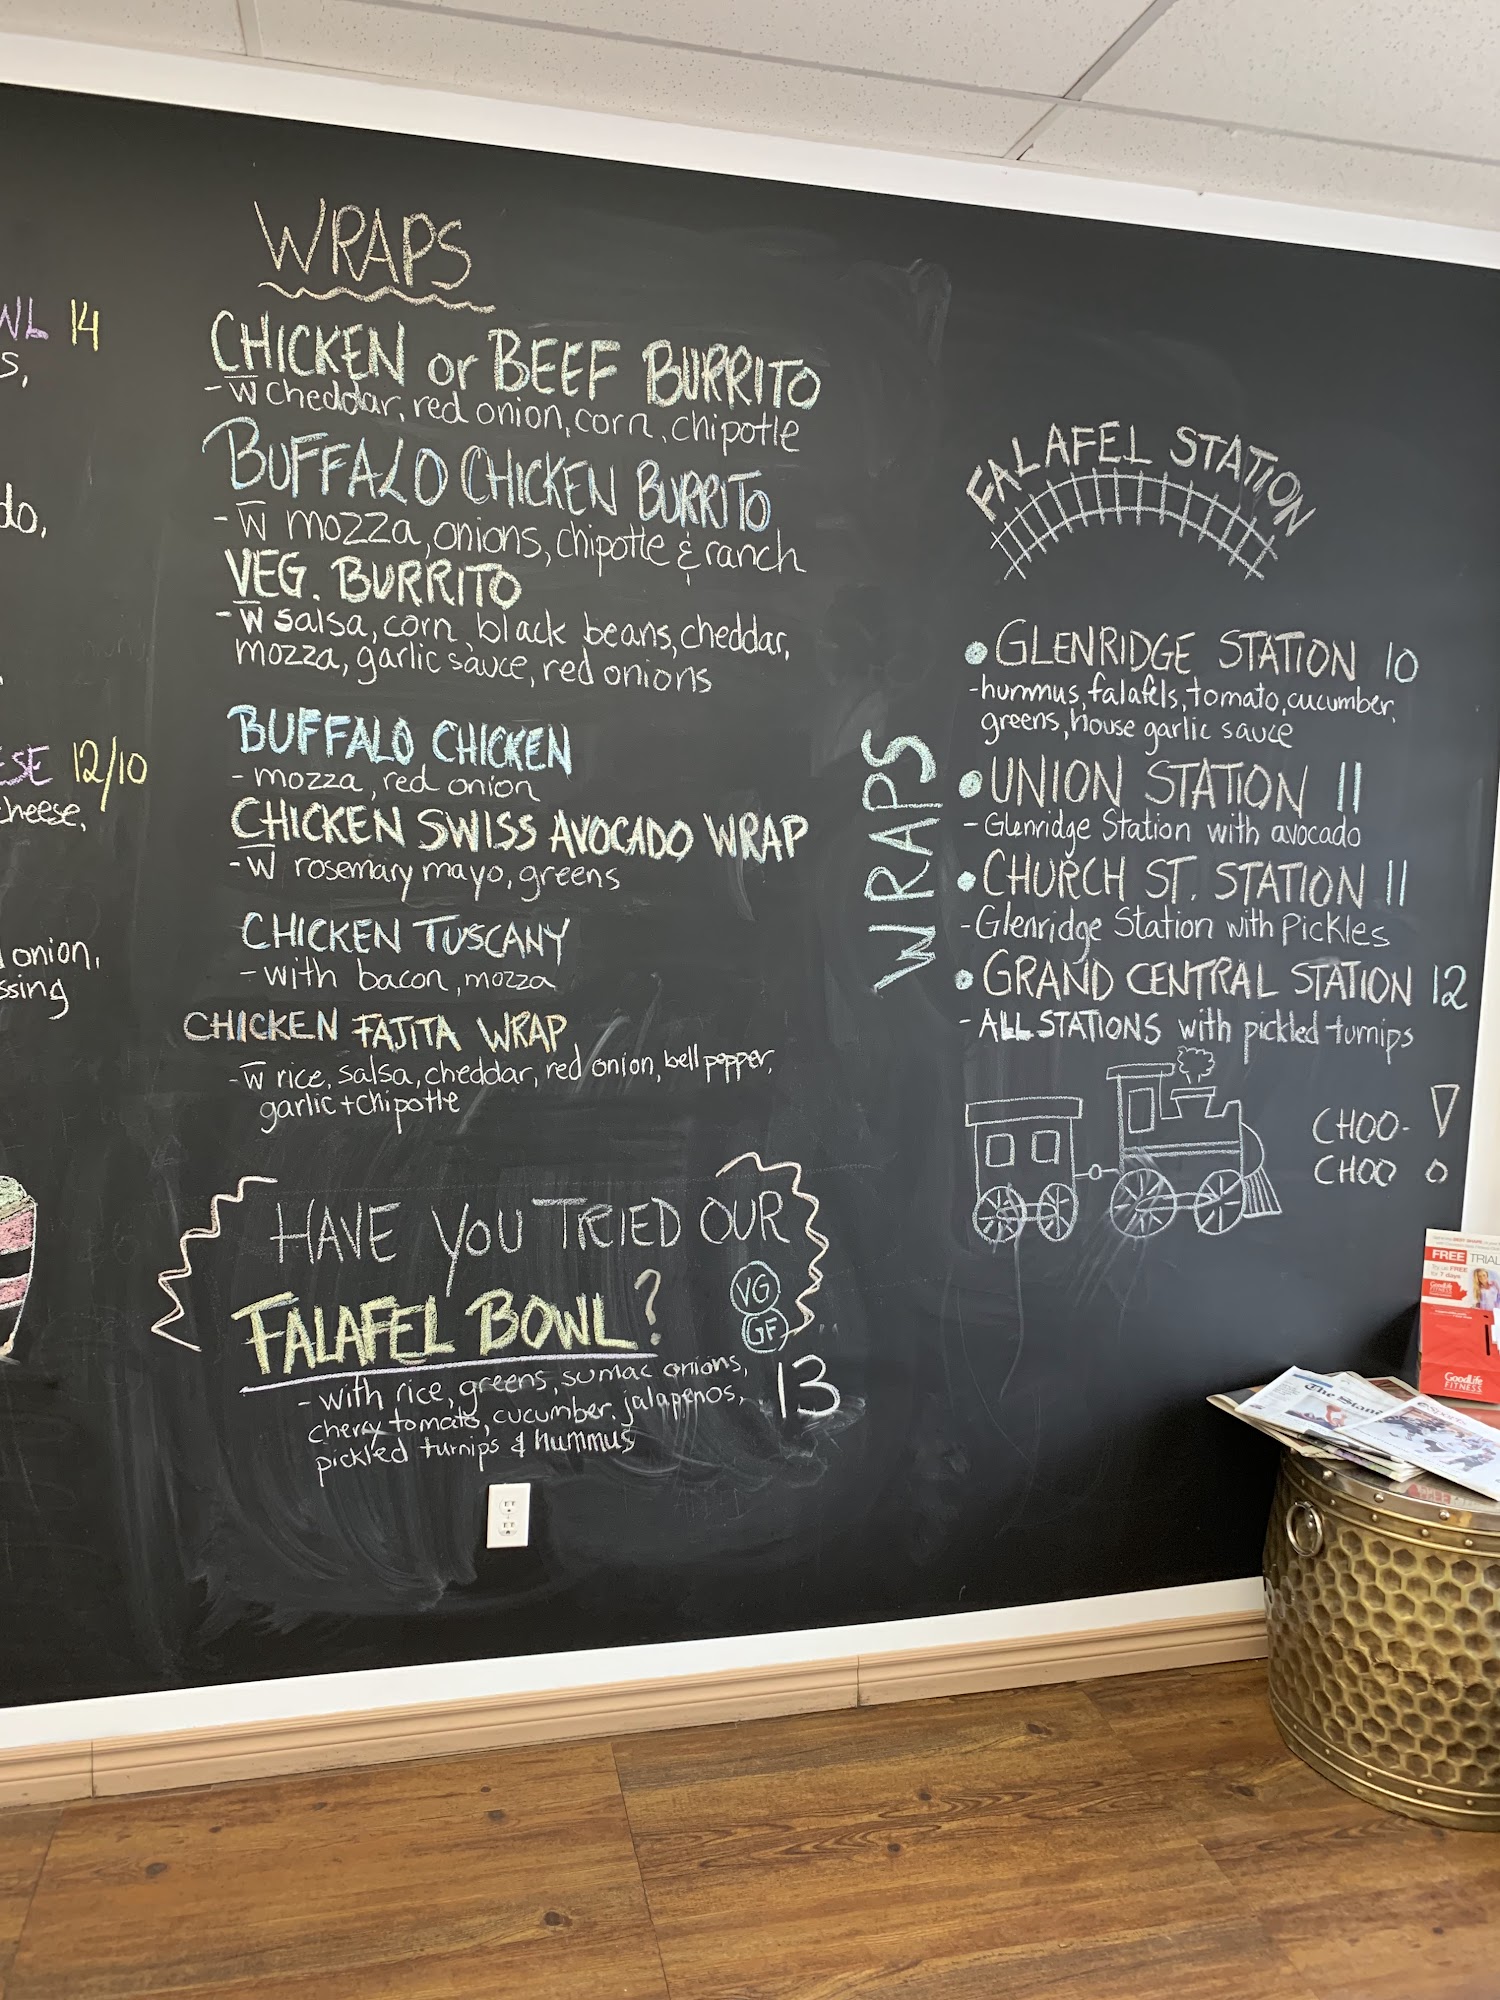 WL 14
S,
do,
ESE 12/10
cheese,
onion,
ssing
WRAPS
CHICKEN or BEEF BURRITO
- W̅ cheddar, red onion, corn, chipotle
BUFFALO CHICKEN BURRITO
- W̅ mozza, onions, chipotle & ranch
VEG. BURRITO
- W̅ salsa, corn, black beans, cheddar,
mozza, garlic sauce, red onions
BUFFALO CHICKEN
- mozza, red onion
CHICKEN SWISS AVOCADO WRAP
- W̅ rosemary mayo, greens
CHICKEN TUSCANY
- with bacon, mozza
CHICKEN FAJITA WRAP
- W̅ rice, salsa, cheddar, red onion, bell pepper,
garlic + chipotle
HAVE YOU TRIED OUR
FALAFEL BOWL?
VG
GF
- with rice, greens, sumac onions,
cherry tomato, cucumber, jalapenos,
pickled turnips & hummus
13
FALAFEL STATION
WRAPS
• GLENRIDGE STATION 10
- hummus, falafels, tomato, cucumber,
greens, house garlic sauce
• UNION STATION 11
- Glenridge Station with avocado
• CHURCH ST. STATION 11
- Glenridge Station with Pickles
• GRAND CENTRAL STATION 12
- ALL STATIONS with pickled turnips
CHOO-
CHOO !
FREE TRIAL
Try us FREE
for 7 days
GoodLife
FITNESS
The Stan
Sports